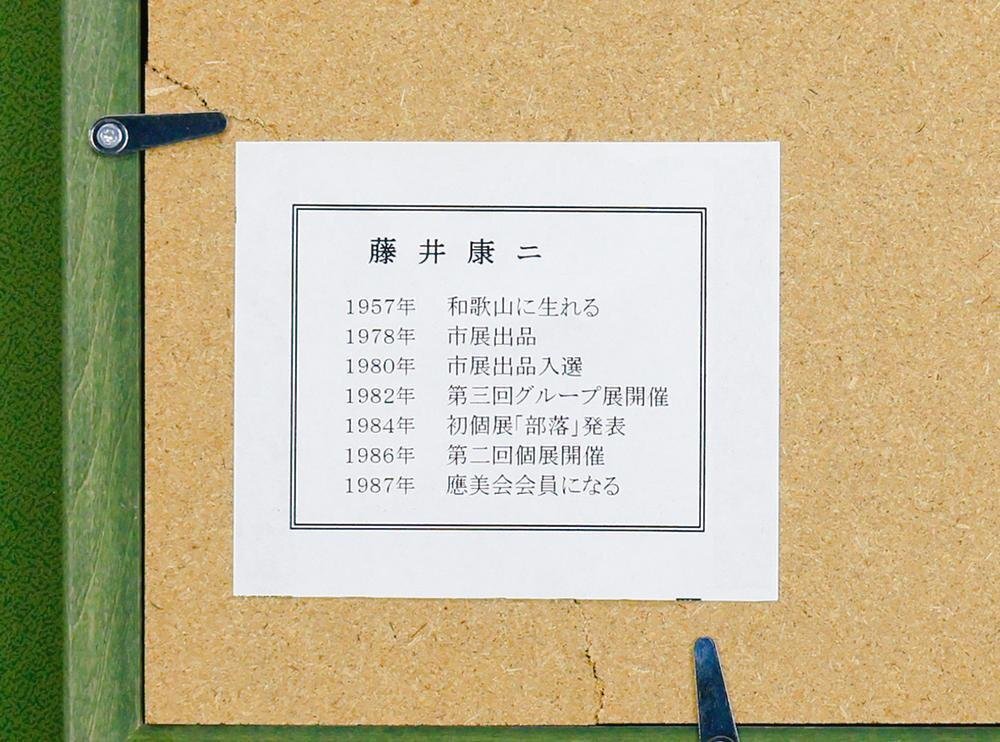 藤井康二
1957年 和歌山に生れる
1978年 市展出品
1980年 市展出品入選
1982年 第三回グループ展開催
1984年 初個展「部落」発表
1986年 第二回個展開催
1987年 應美会会員になる